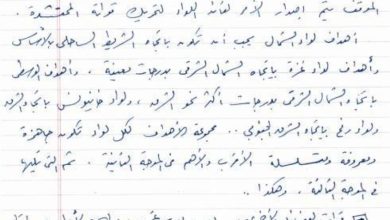 الموقف يتم اصدار الأمر لقائد اللواء لتحريك قواته المحتشدة .
أهداف لواء الشمال يجب أن تكون باتجاه الشريط الساحلي بالأساس
وأهداف لواء غزة باتجاه الشمال الشرقي بدرجات معينة ، وأهداف الوسطى
باتجاه الشمال الشرقي بدرجات أكثر نحو الشرق ، ولواء خانيونس باتجاه الشرق
ولواء رفح باتجاه الشرق الجنوبي .. مجموعة الأهداف لكل لواء تكون جاهزة
ومعروفة ومتسلسلة الأقرب والأهم في الموجة الثانية . ثم التي تليها
في الموجة الثالثة . وهكذا ..